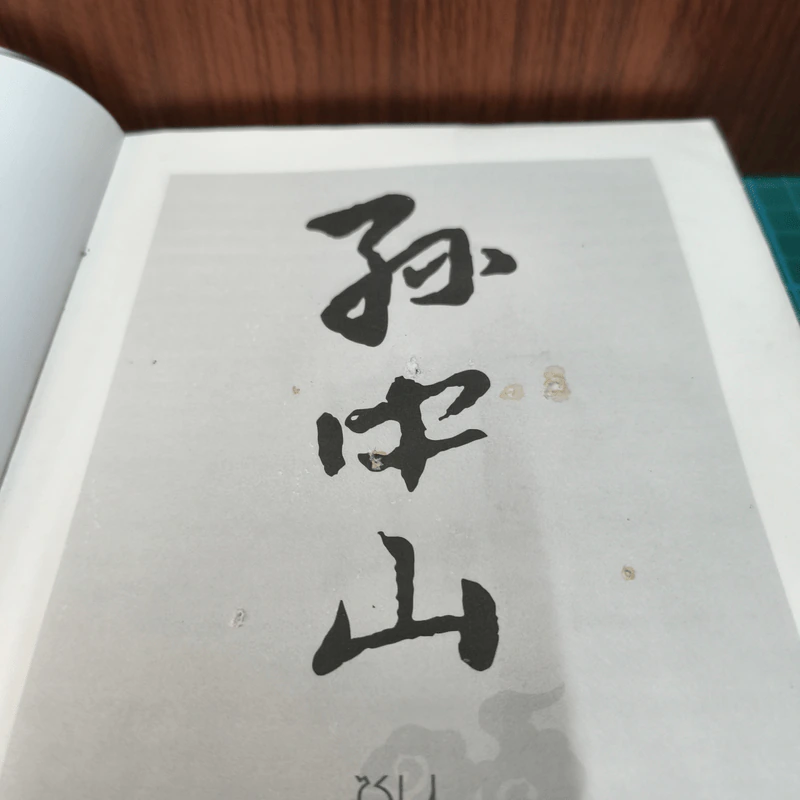 孫中山